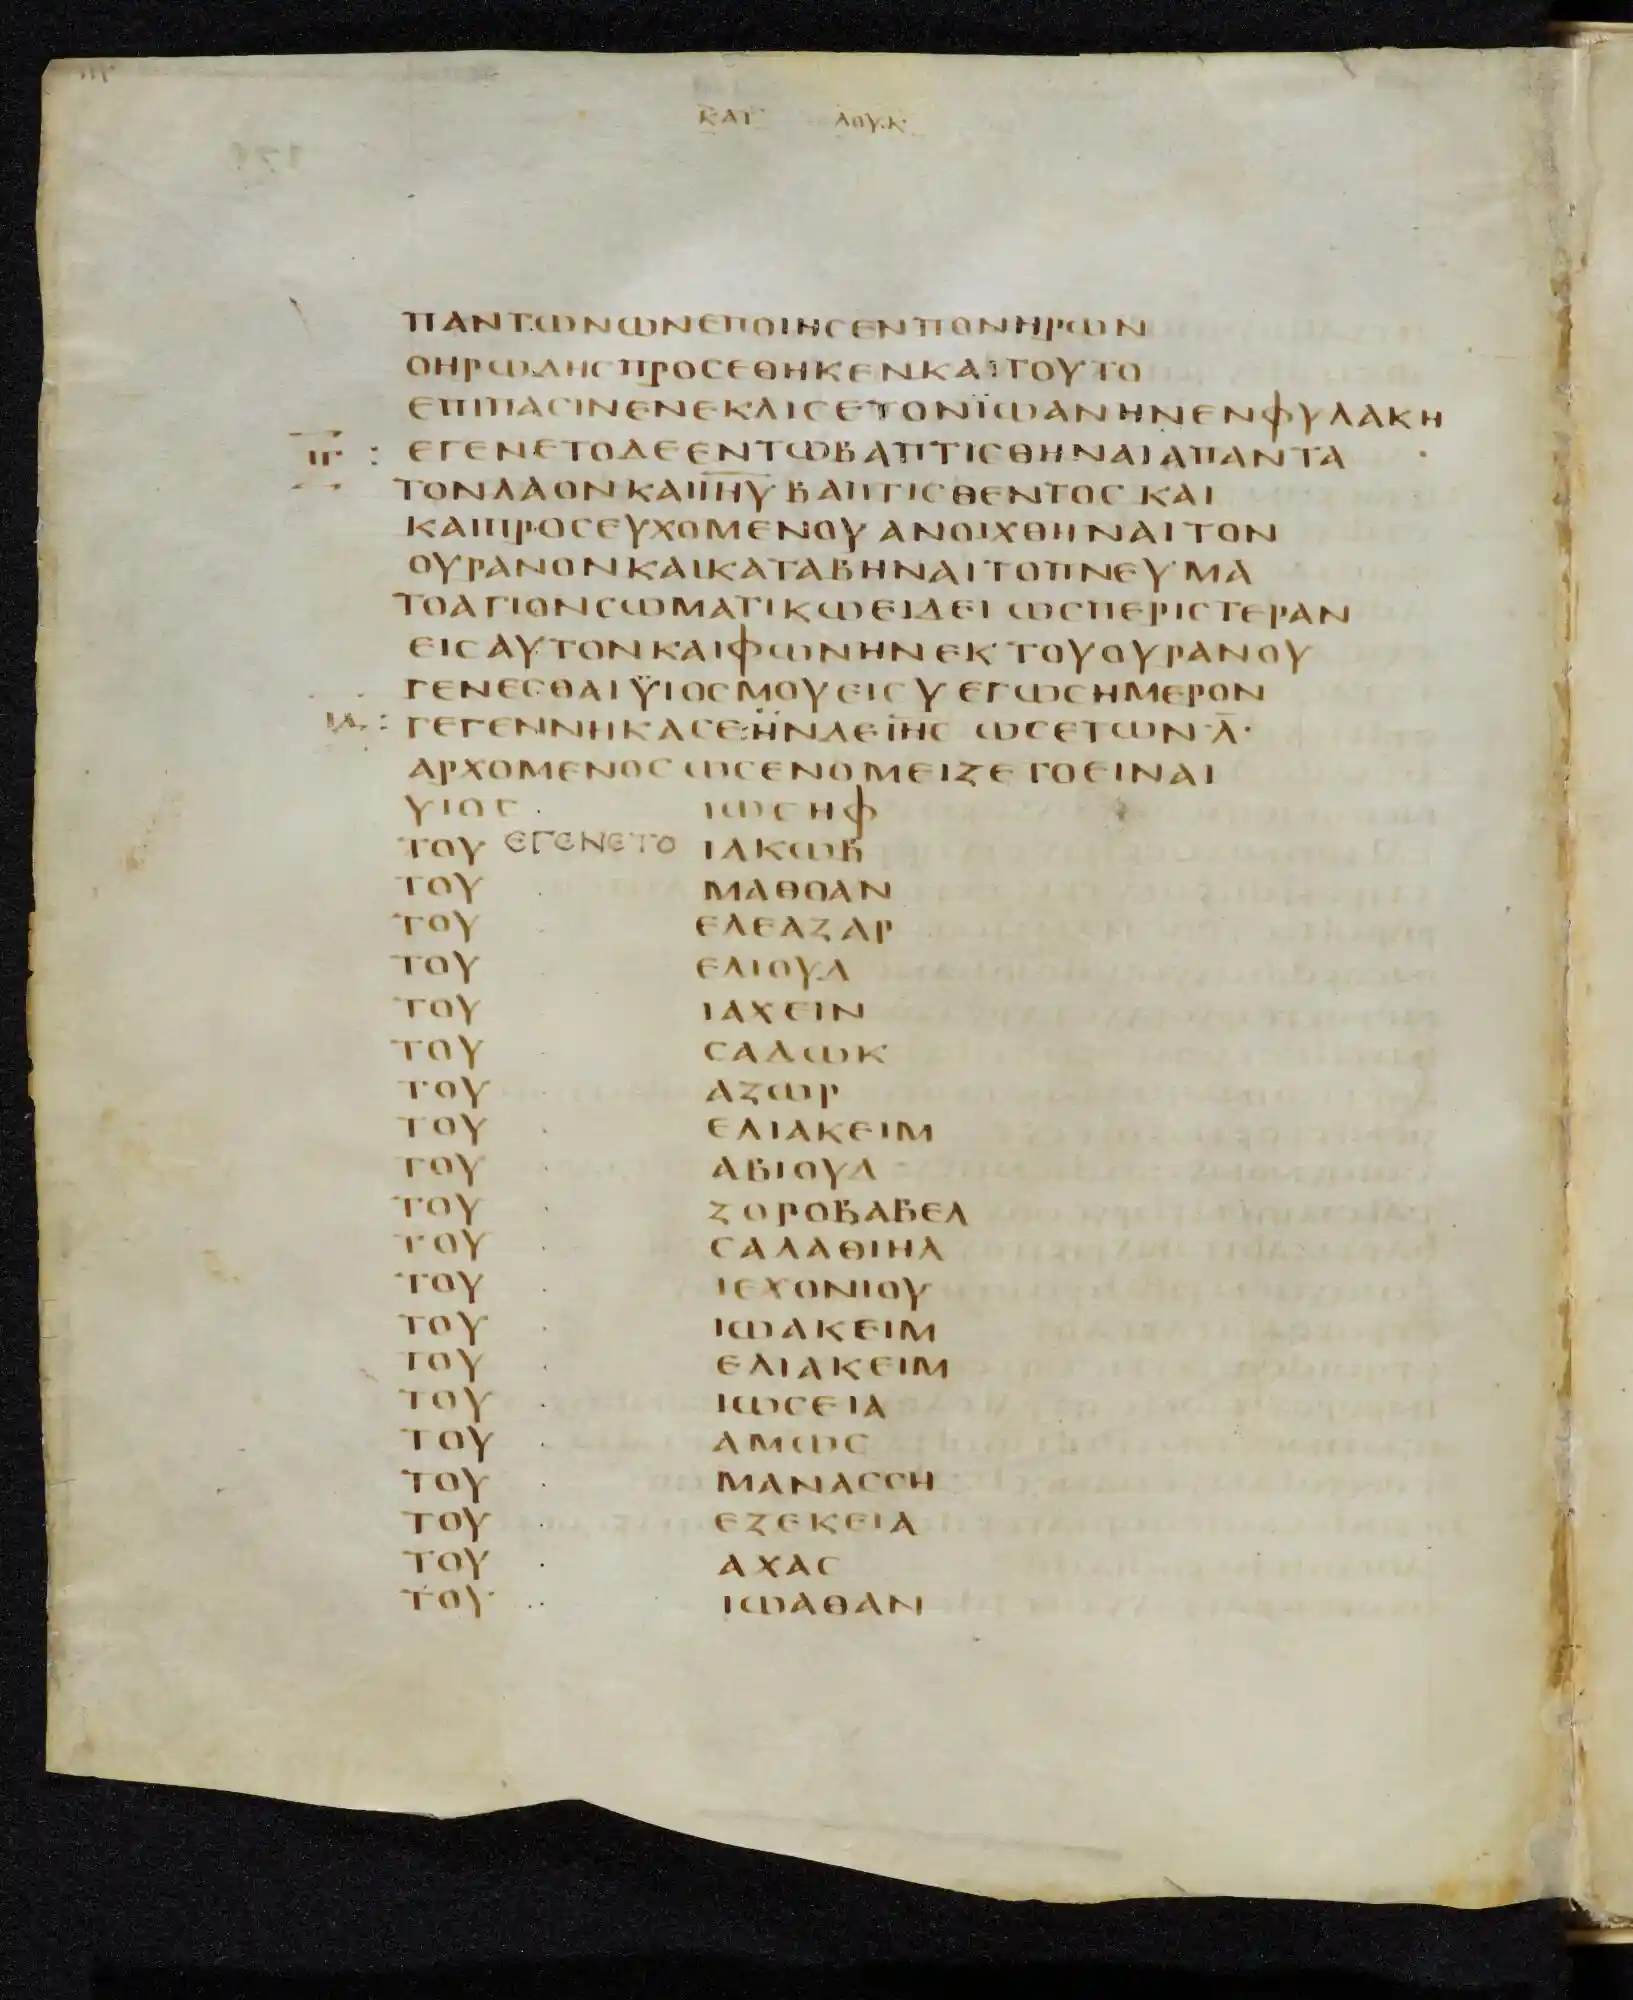 ΚΑΤ ΛΟΥΚ
ΠΑΝΤΩΝΩΝΕΠΟΙΗΣΕΝΠΟΝΗΡΩΝ
ΟΗΡΩΔΗΣΠΡΟΣΕΘΗΚΕΝΚΑΙΤΟΥΤΟ
ΕΠΙΠΑΣΙΝΕΝΕΚΛΙΣΕΤΟΝΪΩΑΝΗΝΕΝΦΥΛΑΚΗ
ΙΓ : ΕΓΕΝΕΤΟΔΕΕΝΤΩΒΑΠΤΙΣΘΗΝΑΙΑΠΑΝΤΑ
ΤΟΝΛΑΟΝΚΑΙΙΗΥ ΒΑΠΤΙΣΘΕΝΤΟΣ ΚΑΙ
ΚΑΙΠΡΟΣΕΥΧΟΜΕΝΟΥ ΑΝΟΙΧΘΗΝΑΙ ΤΟΝ
ΟΥΡΑΝΟΝΚΑΙΚΑΤΑΒΗΝΑΙΤΟΠΝΕΥΜΑ
ΤΟΑΓΙΟΝΣΩΜΑΤΙΚΩΕΙΔΕΙ ΩΣΠΕΡΙΣΤΕΡΑΝ
ΕΙΣΑΥΤΟΝΚΑΙΦΩΝΗΝΕΚ ΤΟΥΟΥΡΑΝΟΥ
ΓΕΝΕΣΘΑΙΫΙΟΣΜΟΥΕΙΣΥ ΕΓΩΣΗΜΕΡΟΝ
ΙΔ : ΓΕΓΕΝΝΗΚΑΣΕ:ΗΝΔΕΙΗΣ ΩΣΕΤΩΝ·Λ̅·
ΑΡΧΟΜΕΝΟΣ ΩΣΕΝΟΜΕΙΖΕΤΟΕΙΝΑΙ
ΥΙΟΣ ΙΩΣΗΦ
ΤΟΥ ΕΓΕΝΕΤΟ ΙΑΚΩΒ
ΤΟΥ ΜΑΘΘΑΝ
ΤΟΥ ΕΛΕΑΖΑΡ
ΤΟΥ ΕΛΙΟΥΔ
ΤΟΥ ΙΑΧΕΙΝ
ΤΟΥ ΣΑΔΩΚ
ΤΟΥ ΑΖΩΡ
ΤΟΥ ΕΛΙΑΚΕΙΜ
ΤΟΥ ΑΒΙΟΥΔ
ΤΟΥ ΖΟΡΟΒΑΒΕΛ
ΤΟΥ ΣΑΛΑΘΙΗΛ
ΤΟΥ ΙΕΧΟΝΙΟΥ
ΤΟΥ ΙΩΑΚΕΙΜ
ΤΟΥ ΕΛΙΑΚΕΙΜ
ΤΟΥ ΙΩΣΕΙΑ
ΤΟΥ ΑΜΩΣ
ΤΟΥ ΜΑΝΑΣΣΗ
ΤΟΥ ΕΖΕΚΕΙΑ
ΤΟΥ ΑΧΑΣ
ΤΟΥ ΙΩΑΘΑΝ